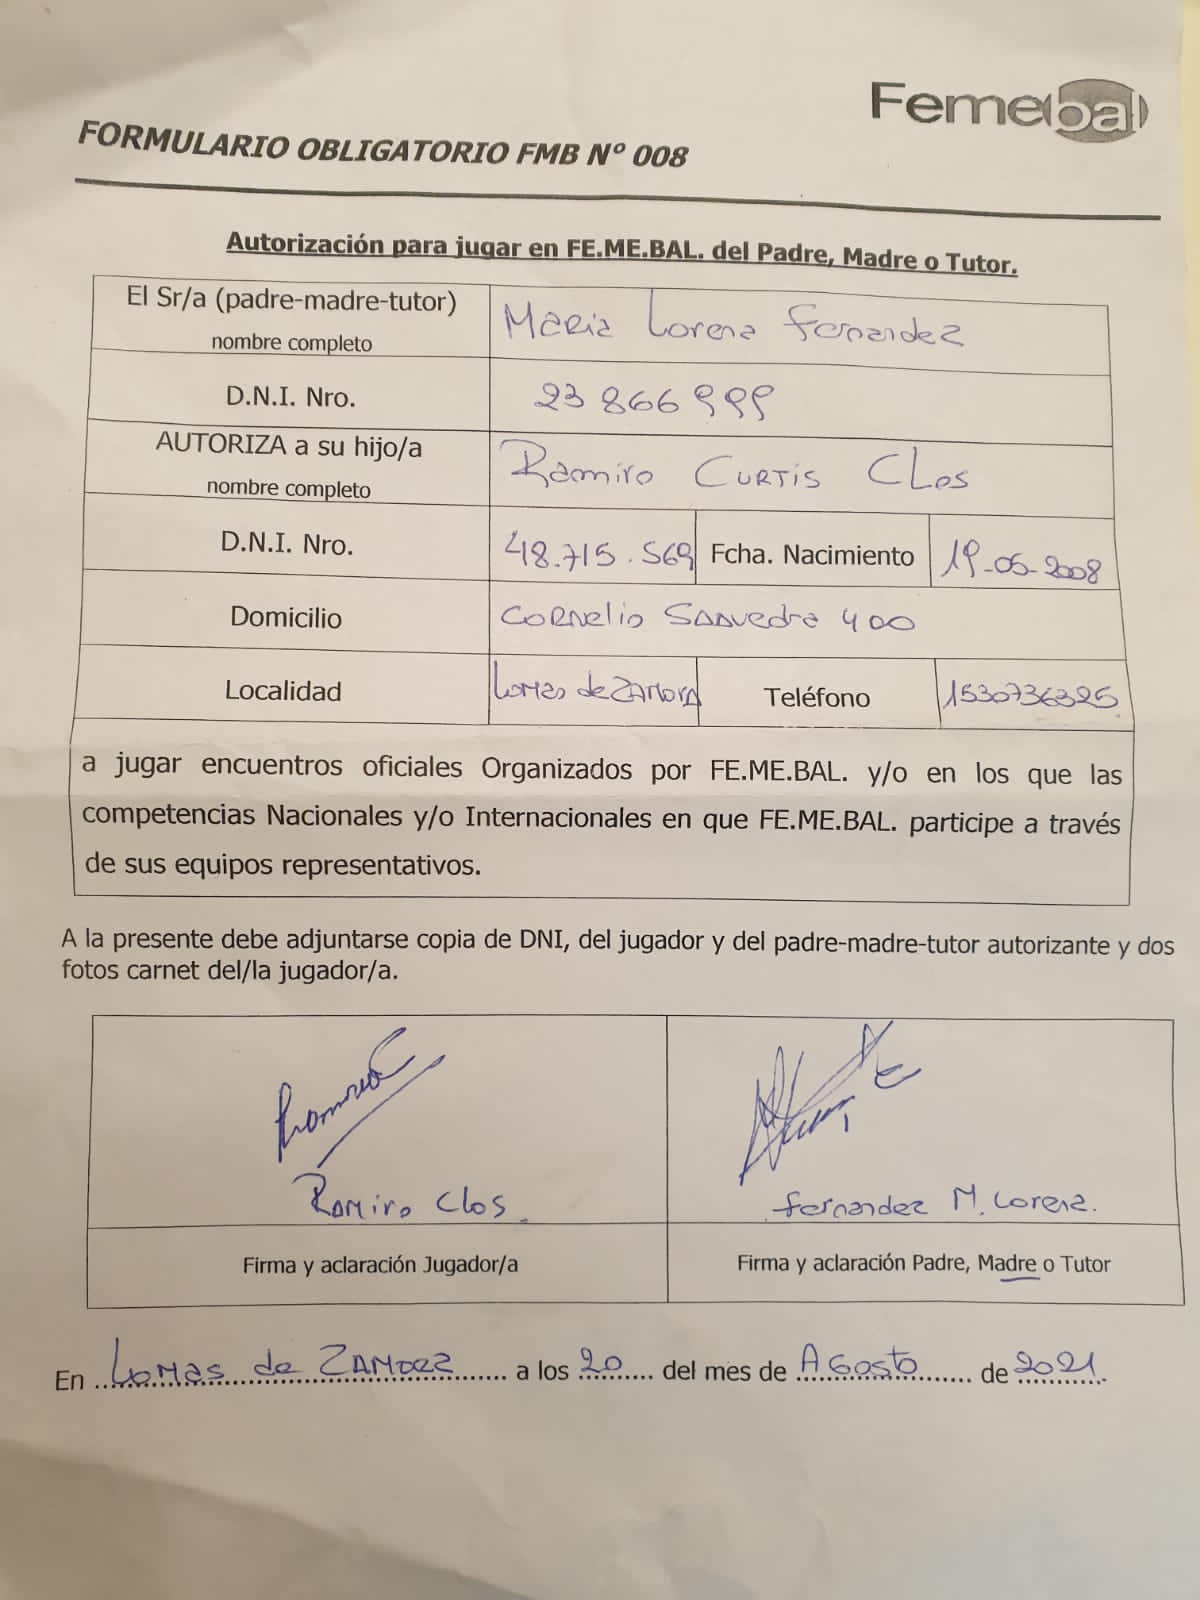 Femebal
FORMULARIO OBLIGATORIO FMB N° 008
Autorización para jugar en FE.ME.BAL. del Padre, Madre o Tutor.
El Sr/a (padre-madre-tutor)
nombre completo
Maria Lorena Fernandez
D.N.I. Nro.
23 866 999
AUTORIZA a su hijo/a
nombre completo
Ramiro Curtis Clos
D.N.I. Nro.
48.715.569
Fcha. Nacimiento
19-05-2008
Domicilio
Cornelio Saavedra 400
Localidad
Lomas de Zamora
Teléfono
1530736325
a jugar encuentros oficiales Organizados por FE.ME.BAL. y/o en los que las
competencias Nacionales y/o Internacionales en que FE.ME.BAL. participe a través
de sus equipos representativos.
A la presente debe adjuntarse copia de DNI, del jugador y del padre-madre-tutor autorizante y dos
fotos carnet del/la jugador/a.
Ramiro Clos.
Fernandez M. Lorena.
Firma y aclaración Jugador/a
Firma y aclaración Padre, Madre o Tutor
En Lomas de Zamora a los 20 del mes de Agosto de 2021.